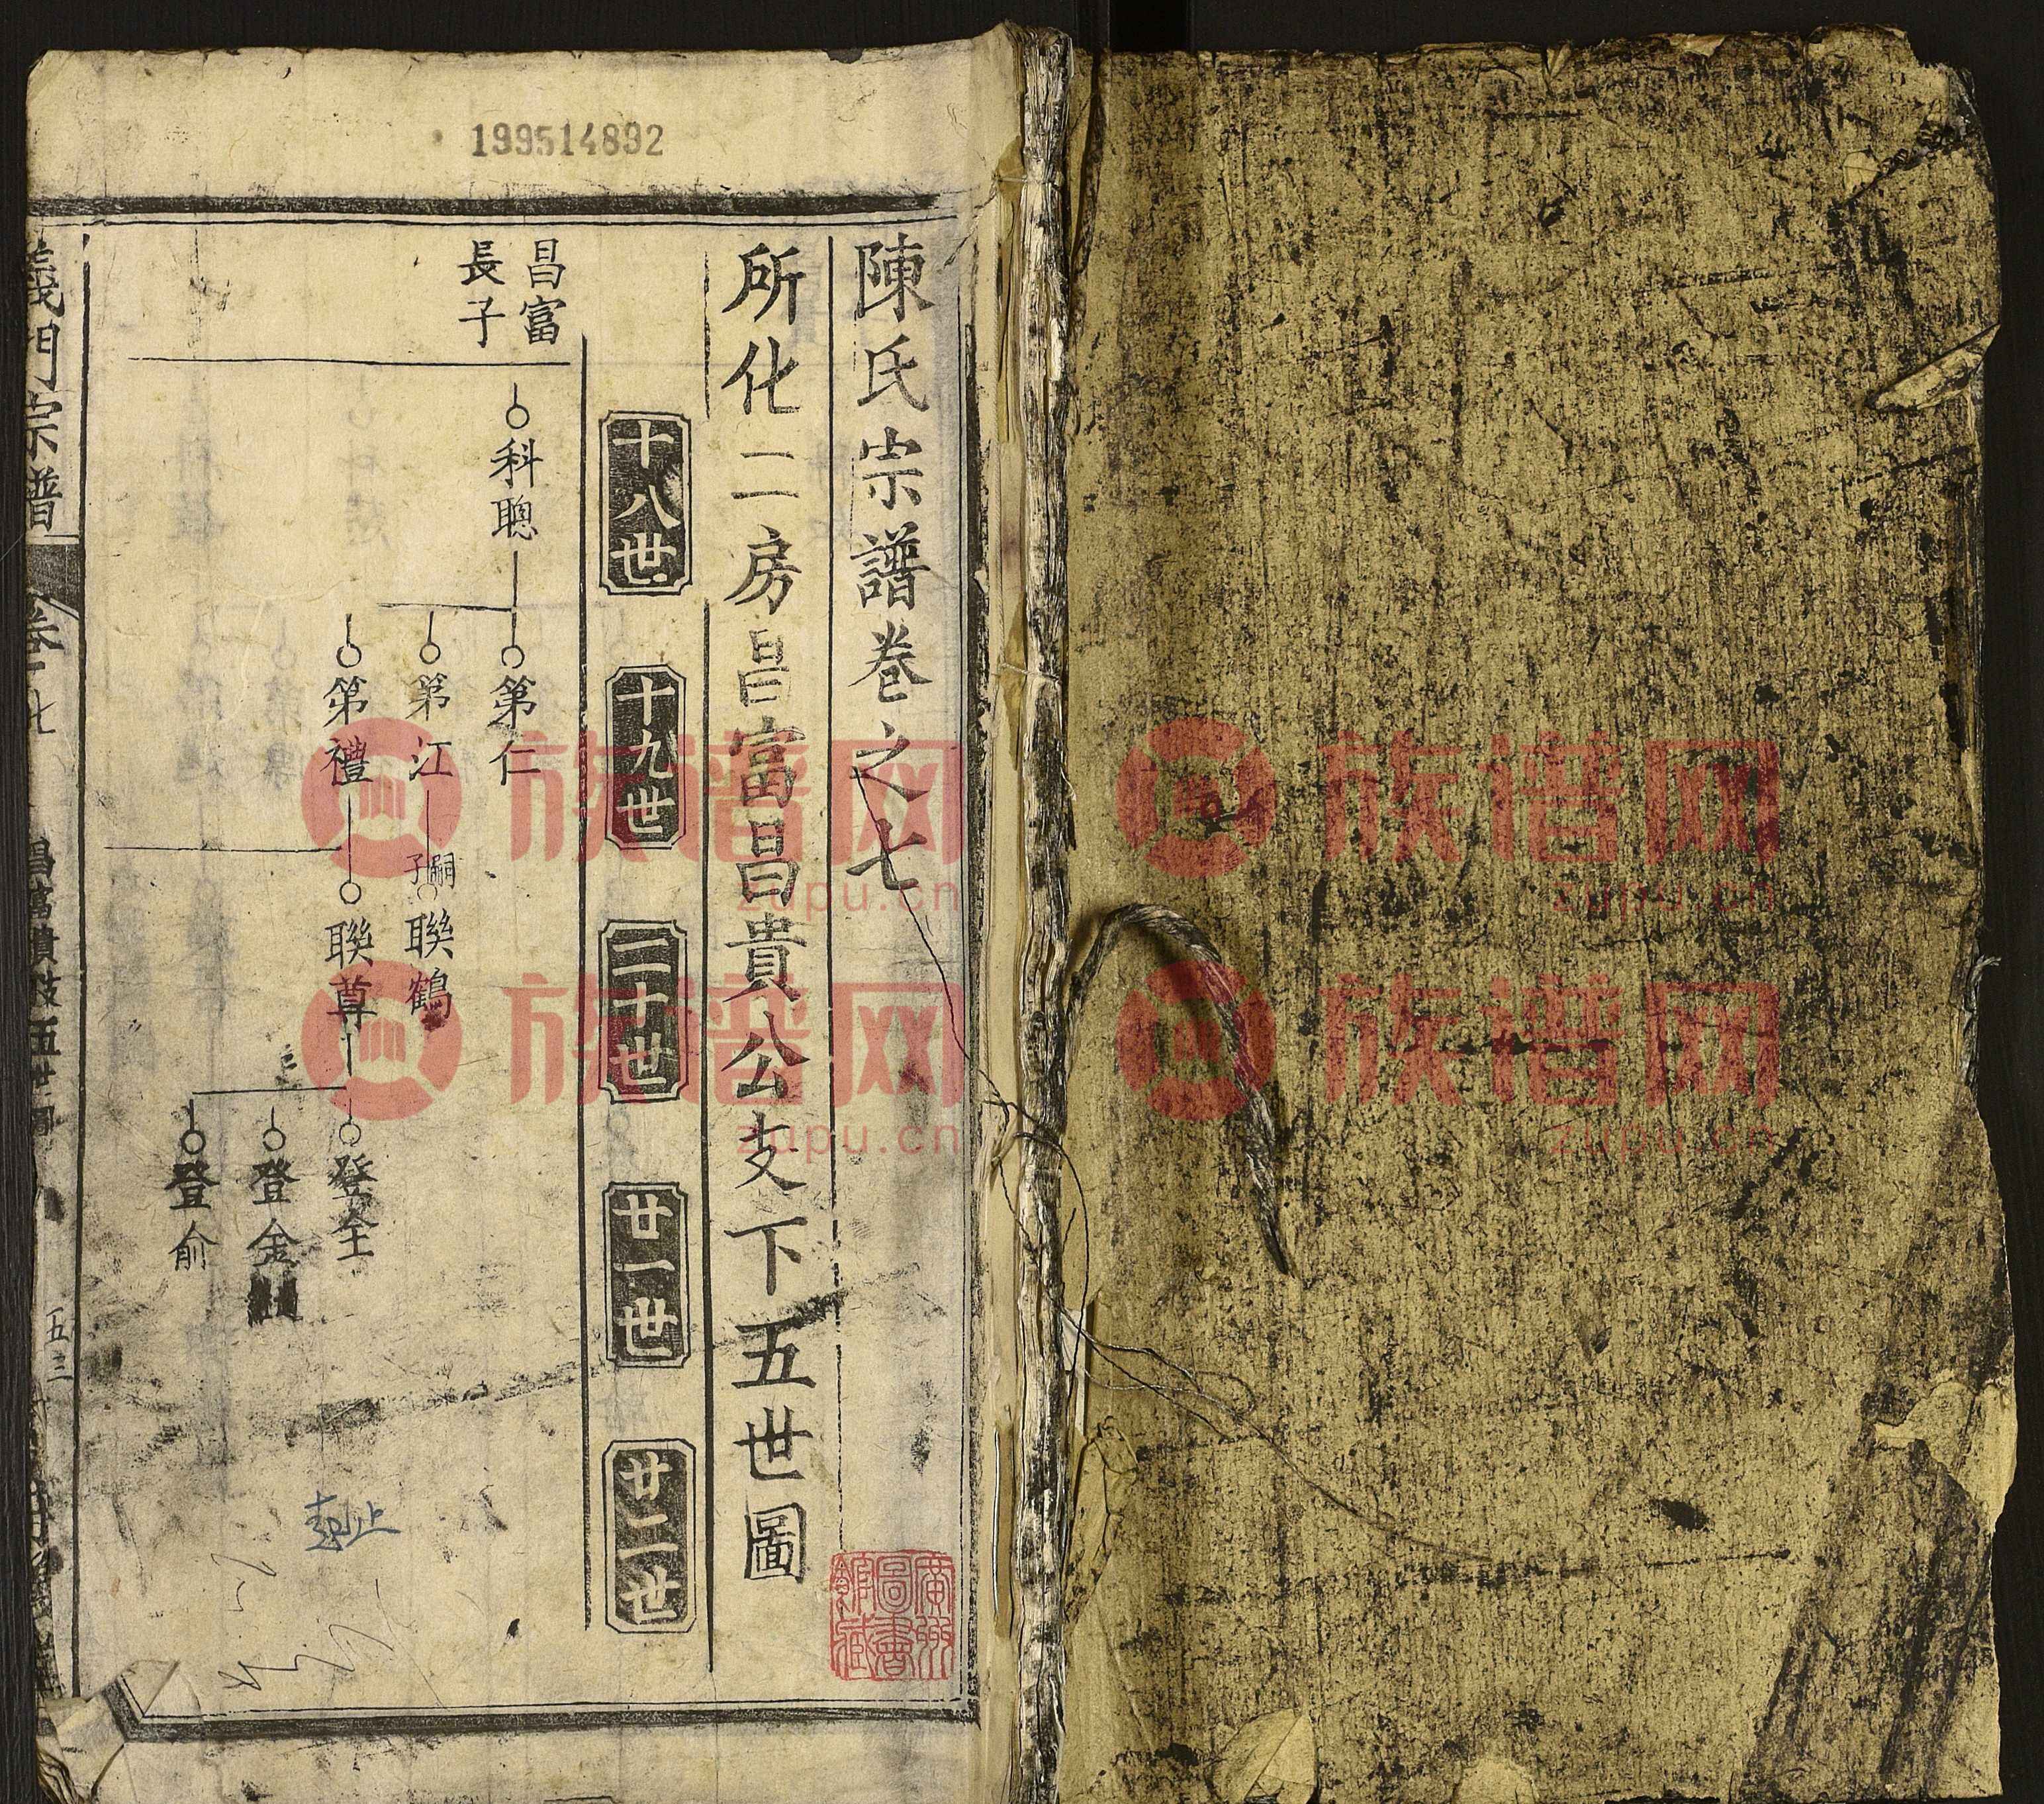 199514892
陳氏宗譜卷之七
所化二房昌富昌貴公支下五世圖
十八世
十九世
二十世
廿一世
廿二世
昌富
長子
科聰
第仁
第江
嗣子
聯鶴
第禮
聯尊
登全
登金
登俞
義門宗譜
卷七
五三
廣州
圖書
館藏
族谱网
zupu.cn
族谱网
zupu.cn
族谱网
zupu.cn
族谱网
zupu.cn